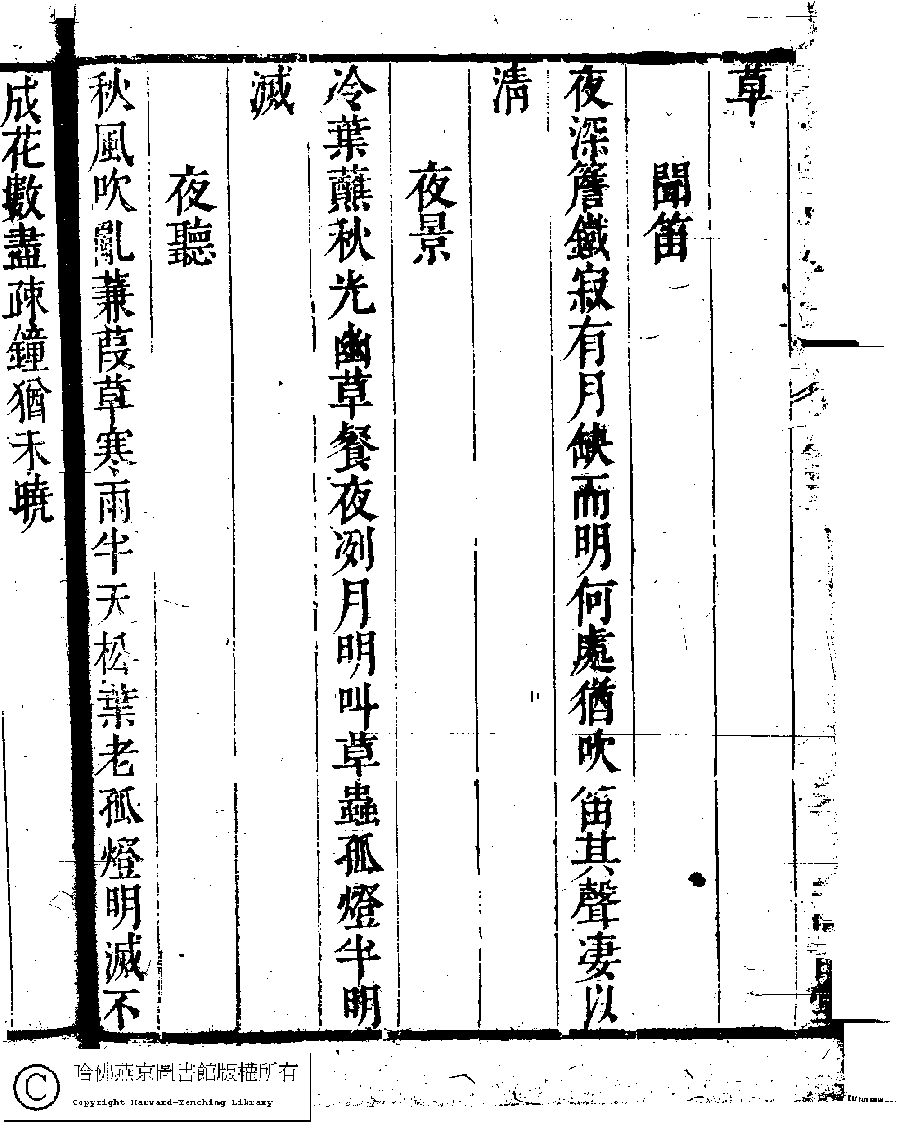 草
聞笛
夜深簷鐵寂有月缺而明何處猶吹笛其聲凄以
清
夜景
冷葉蘸秋光幽草餐夜冽月明叫草蟲孤燈半明
滅
夜聽
秋風吹亂蒹葭草寒雨半天松葉老孤燈明滅不
成花數盡疎鐘猶未曉
哈佛燕京圖書館版權所有
Copyright Harvard-Yenching Library